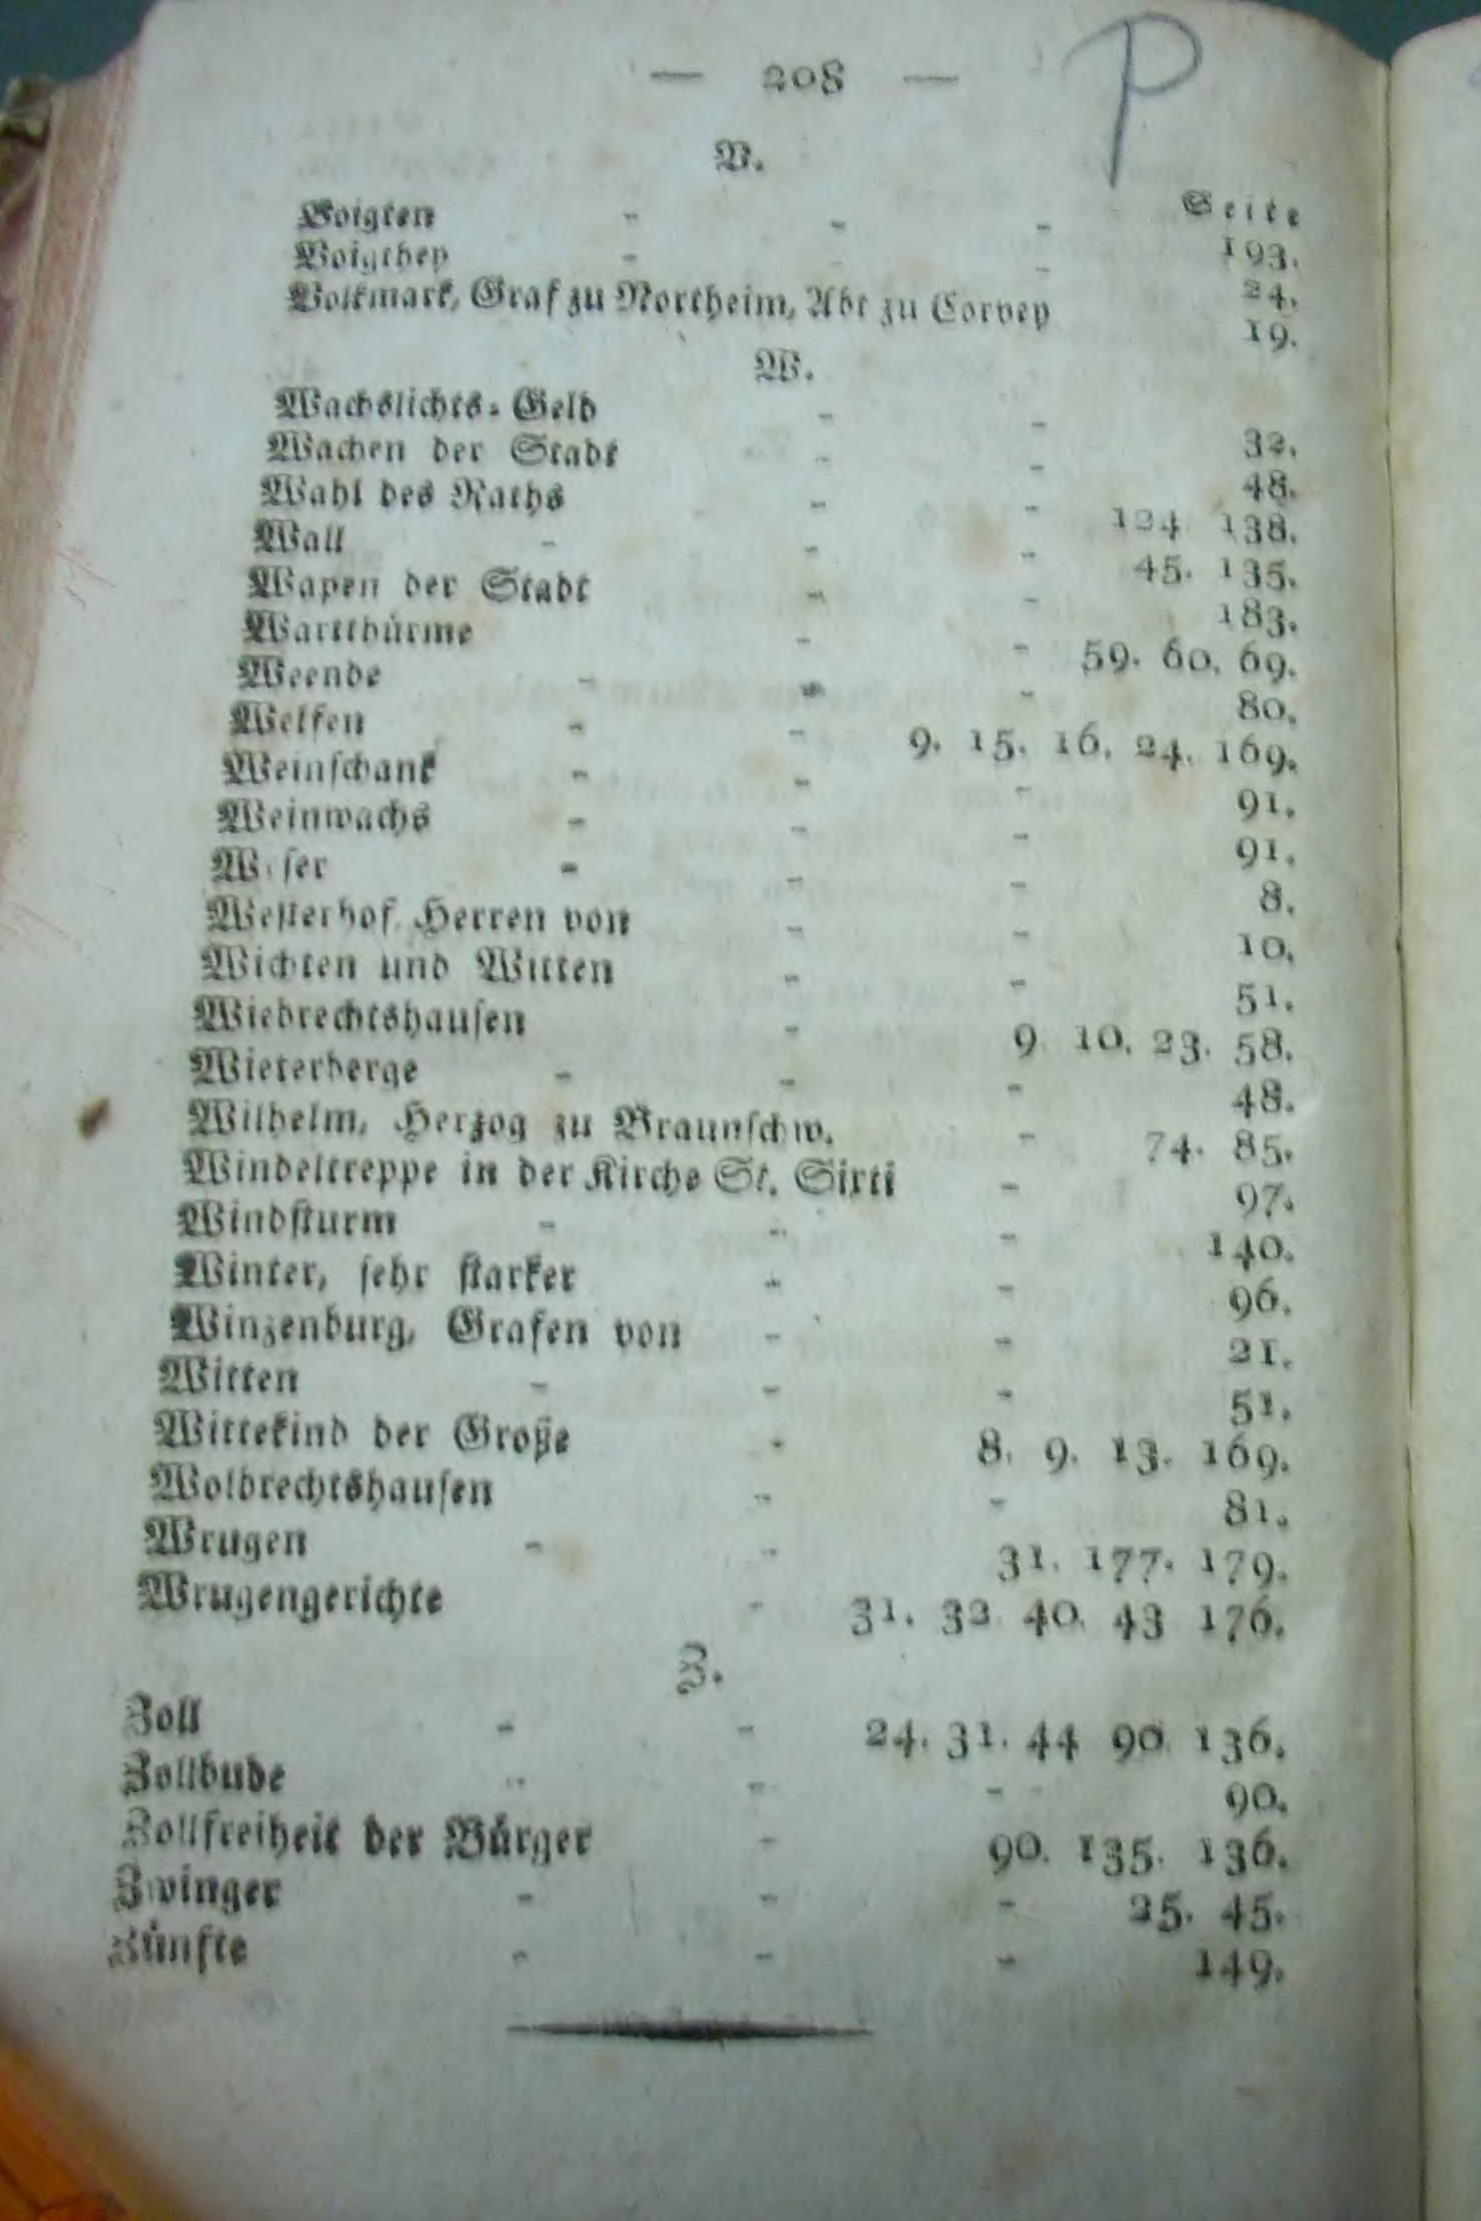 — 208 —
P
V.
Seite
Voigten - - - 193.
Voigthey - - - 24.
Volkmark, Graf zu Northeim, Abt zu Corvey 19.
W.
Wachslichts-Geld - - 32.
Wachen der Stadt - - 48.
Wahl des Raths - - 124 138.
Wall - - - 45. 135.
Wapen der Stadt - - 183.
Wartthürme - - 59. 60. 69.
Weende - - - 80.
Welfen - - 9. 15. 16. 24. 169.
Weinschank - - - 91.
Weinwachs - - - 91.
W ser - - - 8.
Westerhof Herren von - - 10.
Wichten und Witten - - 51.
Wiebrechtshausen - 9 10. 23. 58.
Wieterberge - - - 48.
Wilhelm, Herzog zu Braunschw. - 74. 85.
Windeltreppe in der Kirche St. Sixti - 97.
Windsturm - - - 140.
Winter, sehr starker - - 96.
Winzenburg, Grafen von - - 21.
Witten - - - 51.
Wittekind der Große - 8. 9. 13. 169.
Wolbrechtshausen - - 81.
Wrugen - - 31. 177. 179.
Wrugengerichte - 31. 32 40. 43 176.
Z.
Zoll - - 24. 31. 44 90 136.
Zollbude - - - 90.
Zollfreiheit der Bürger - 90. 135. 136.
Zwinger - - - 25. 45.
Zünfte - - - 149.